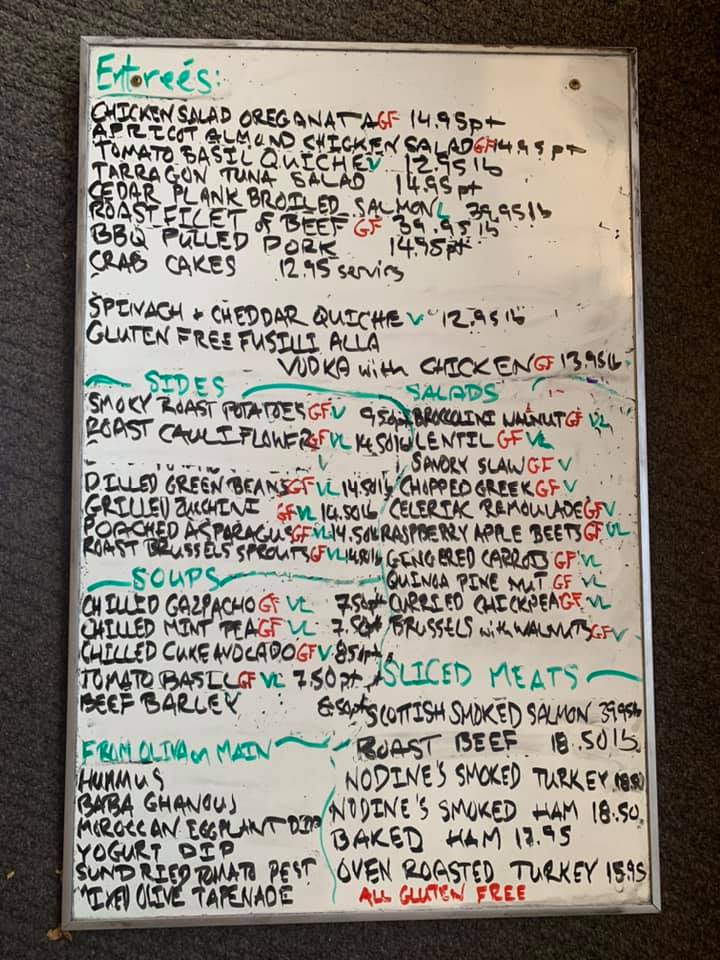 Entreés:
CHICKEN SALAD OREGANATA GF 14.95 pt
APRICOT ALMOND CHICKEN SALAD GF 14.95 pt
TOMATO BASIL QUICHE V 12.95 lb
TARRAGON TUNA SALAD 14.95 pt
CEDAR PLANK BROILED SALMON 39.95 lb
ROAST FILET of BEEF GF 39.95 lb
BBQ PULLED PORK 14.95 pt
CRAB CAKES 12.95 serving
SPINACH + CHEDDAR QUICHE V 12.95 lb
GLUTEN FREE FUSILLI ALLA
VODKA with CHICKEN GF 13.95 lb
SIDES
SMOKY ROAST POTATOES GF V
ROAST CAULIFLOWER GF VL 14.50 lb
DILLED GREEN BEANS GF VL 14.50 lb
GRILLED ZUCCHINI GF VL 14.50 lb
POACHED ASPARAGUS GF VL 14.50 lb
ROAST BRUSSELS SPROUTS GF VL 14.50 lb
SALADS
BROCCOLINI WALNUT GF VL
LENTIL GF VL
SAVORY SLAW GF V
CHOPPED GREEK GF V
CELERIAC REMOULADE GF V
RASPBERRY APPLE BEETS GF VL
GINGERED CARROTS GF VL
QUINOA PINE NUT GF VL
CURRIED CHICKPEA GF VL
BRUSSELS with WALNUTS GF V
SOUPS
CHILLED GAZPACHO GF VL 7.50 pt
CHILLED MINT PEA GF VL 7.50 pt
CHILLED CUKE AVOCADO GF V 8.50 pt
TOMATO BASIL GF VL 7.50 pt
BEEF BARLEY 8.50 pt
SLICED MEATS
SCOTTISH SMOKED SALMON 39.95 lb
ROAST BEEF 18.50 lb
NODINE'S SMOKED TURKEY 18.50
NODINE'S SMOKED HAM 18.50
BAKED HAM 17.95
OVEN ROASTED TURKEY 15.95
ALL GLUTEN FREE
FROM OLIVA on MAIN
HUMMUS
BABA GHANOUJ
MOROCCAN EGGPLANT DIP
YOGURT DIP
SUNDRIED TOMATO PEST
MIXED OLIVE TAPENADE